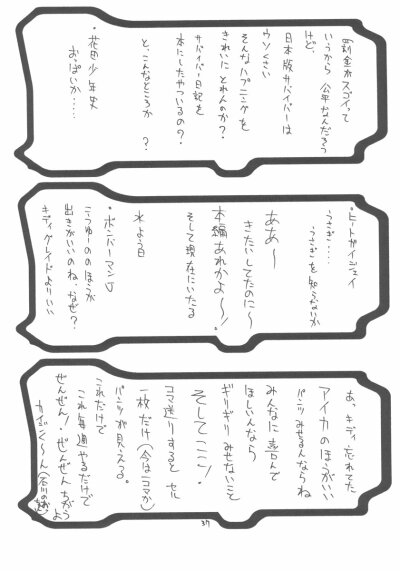 罰金がスゴイって
いうから 公平なんだろう
けど、
日本版サバイバーは
ウソくさい
そんなハプニングを
きれいにとれんのか?
サバイバー日記を
本にしたやついるの?
と、こんなところか ?
・花田少年史
おっぱいか・・・・
・ヒートガイジェイ
うさぎ・・・
うさぎを知らないか
ああ〜
きたいしてたのに〜
本編あれかよ〜!
そして現在にいたる
水よう日
・ボンバーマンJ
こうゆーののほうが
出きがいいのね、なぜ?
キディグレイドよりいい
あ、キディ忘れてた
アイカのほうがいい
パンツみせるんならね
みんなに喜んで
ほしいんなら
ギリギリみせないこと
そしてここ!
コマ送りすると セル
一枚だけ(今は一コマか)
パンツが見える。
これだけで
これ毎週やるだけで
ぜんぜん!ぜんぜんちがうよ
カイジく〜ん
37